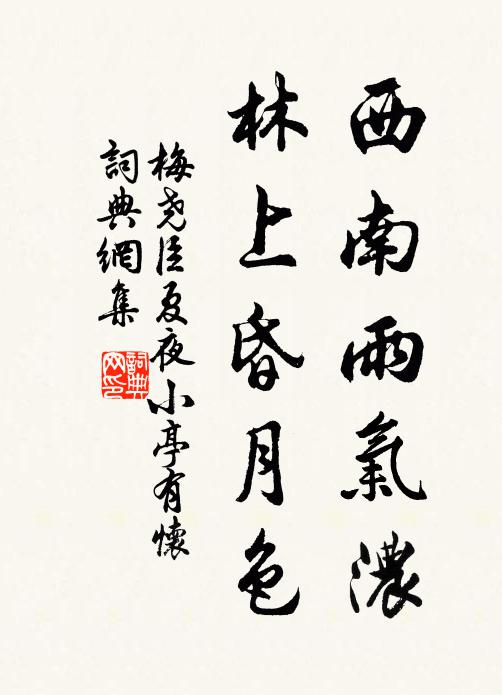 西南雨氣濃
林上昏月色
梅堯臣夏夜小亭有懷
詞典網集
詞典网印